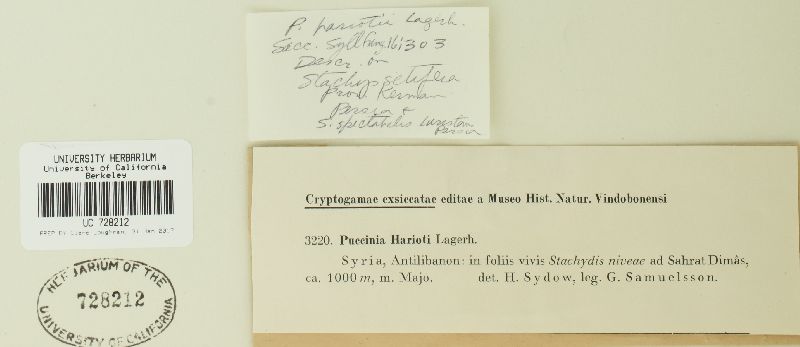 P. hariotii Lagerh.
Sacc. Syll Fung 16:303
Descr. on
Stachys setifera
Prov. Kerman
Persia &
S. spectabilis Luristan
Persia
UNIVERSITY HERBARIUM
University of California
Berkeley
UC 728212
HERBARIUM OF THE
728212
UNIVERSITY OF CALIFORNIA
Cryptogamae exsiccatae editae a Museo Hist. Natur. Vindobonensi
3220. Puccinia Harioti Lagerh.
Syria, Antilibanon: in foliis vivis Stachydis niveae ad Sahrat Dimâs,
ca. 1000 m, m. Majo. det. H. Sydow, leg. G. Samuelsson.